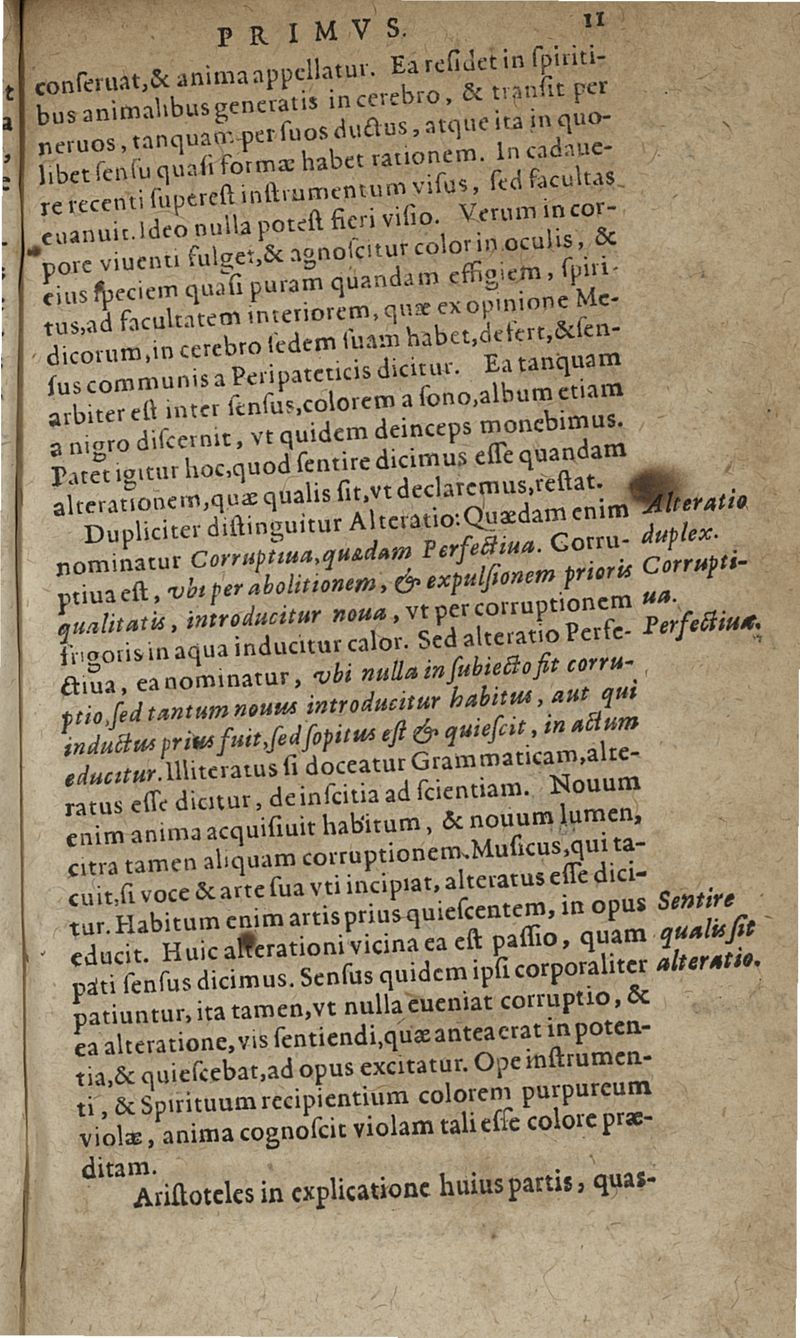 PRIMVS. 11
conſeruat,& anima appellatur. Ea reſidet in ſpiriti-
bus animalibus generatis in cerebro, & tranſit per
neruos, tanquam per ſuos ductus, atque ita in quo-
libet ſenſu quaſi formæ habet rationem. In cadaue-
re recenti ſupereſt inſtrumentum viſus, ſed facultas
euanuit. Ideo nulla poteſt fieri viſio. Verum in cor-
pore viuenti fulget,& agnoſcitur color in oculis, &
eius ſpeciem quaſi puram quandam effigiem, ſpiri-
tus,ad facultatem interiorem, quæ ex opinione Me-
dicorum,in cerebro ſedem ſuam habet,defert,&ſen-
ſus communis a Peripateticis dicitur. Ea tanquam
arbiter eſt inter ſenſus,colorem a ſono,album etiam
a nigro diſcernit, vt quidem deinceps monebimus.
Patet igitur hoc,quod ſentire dicimus eſſe quandam
alterationem,quæ qualis ſit,vt declaremus,reſtat.
Dupliciter diſtinguitur Alteratio: Quædam enim
nominatur Corruptiua,quædam Perfectiua. Corru-
ptiua eſt, vbi per abolitionem, & expulſionem prioris
qualitatis, introducitur noua, vt per corruptionem
frigoris in aqua inducitur calor. Sed alteratio Perfe-
ctiua, ea nominatur, vbi nulla in ſubiecto fit corru-
ptio,ſed tantum nouus introducitur habitus, aut qui
inductus prius fuit,ſed ſopitus eſt & quieſcit, in actum
educitur. Illiteratus ſi doceatur Grammaticam,alte-
ratus eſſe dicitur, de inſcitia ad ſcientiam. Nouum
enim anima acquiſiuit habitum, & nouum lumen,
citra tamen aliquam corruptionem. Muſicus,qui ta-
cuit,ſi voce & arte ſua vti incipiat, alteratus eſſe dici-
tur. Habitum enim artis prius quieſcentem, in opus
educit. Huic alterationi vicina ea eſt paſſio, quam
pati ſenſus dicimus. Senſus quidem ipſi corporaliter
patiuntur, ita tamen,vt nulla eueniat corruptio, &
ea alteratione, vis ſentiendi,quæ antea erat in poten-
tia,& quieſcebat,ad opus excitatur. Ope inſtrumen-
ti, & Spirituum recipientium colorem purpureum
violæ, anima cognoſcit violam tali eſſe colore præ-
ditam.
Ariſtoteles in explicatione huius partis, quas-
Alteratio
duplex.
Corrupti-
ua.
Perfectiua.
Sentire
qualis ſit
alteratio.